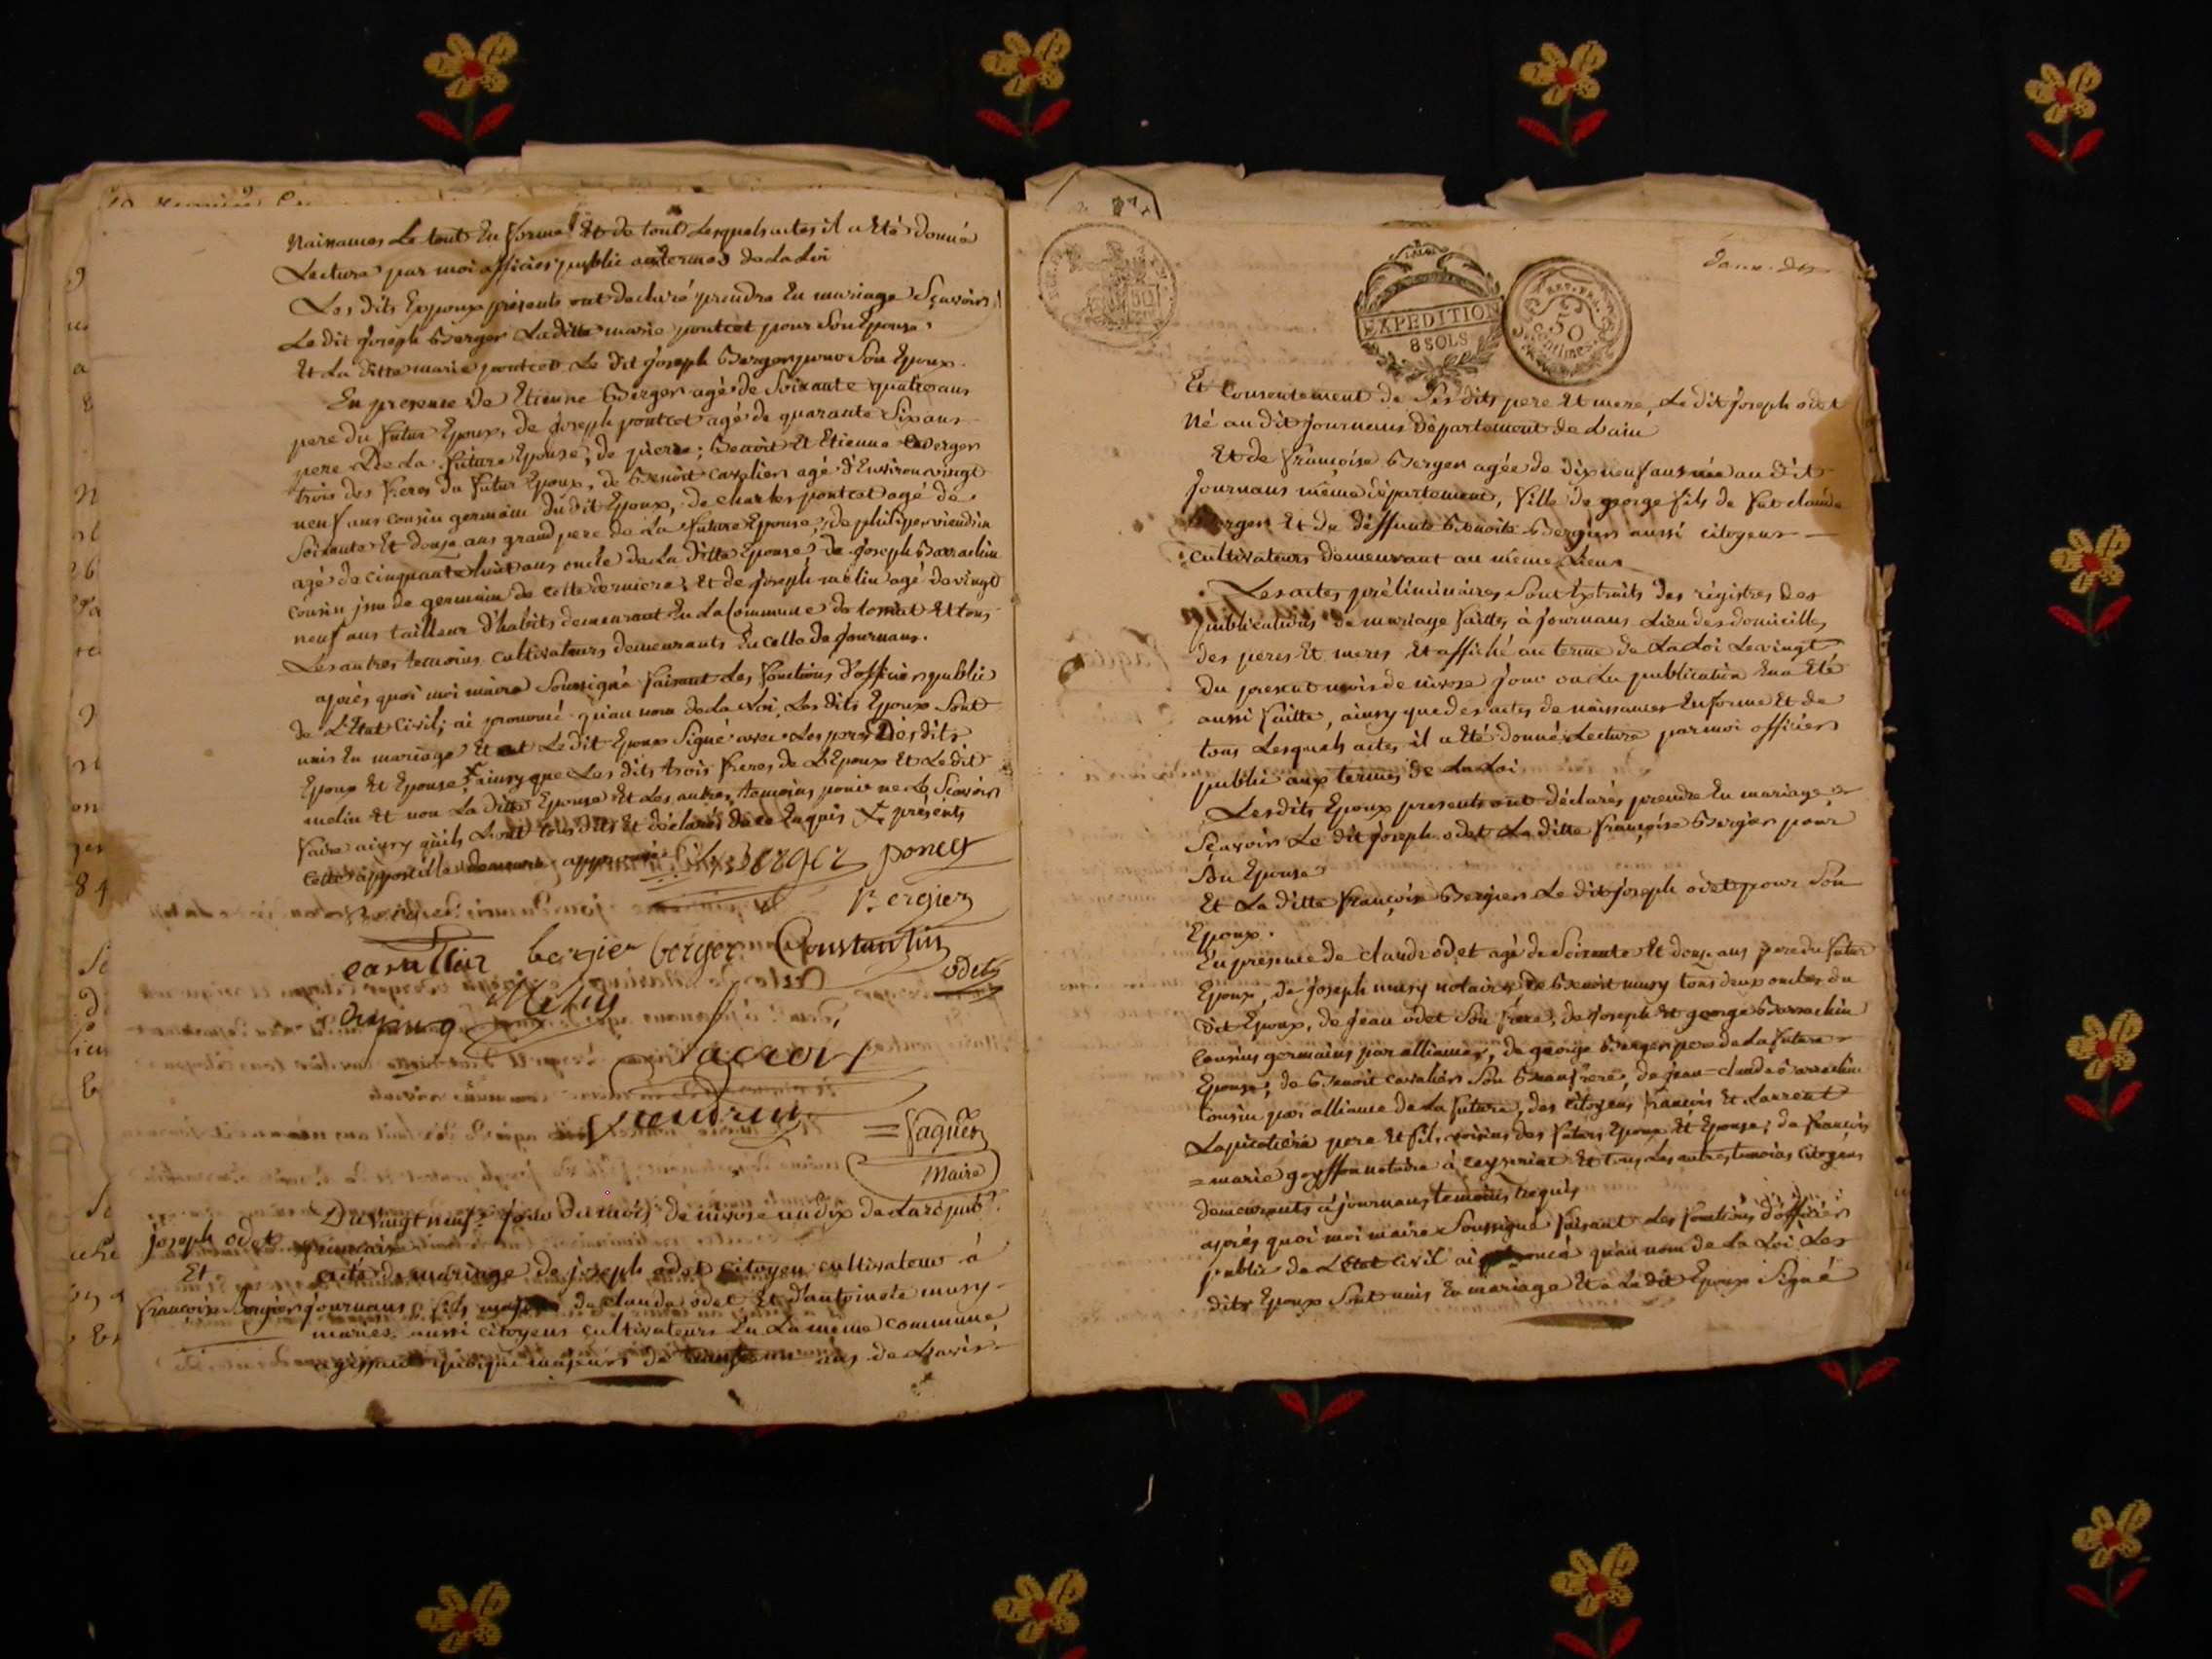 Naissances Le tout En forme Et de tout Lesquels actes il a Eté donné
Lecture par moi officier public aux termes de La Loi
Les dits Epoux présents ont declaré prendre En mariage Sçavoir
Le dit joseph Berger La ditte marie pontcet pour Son Epouse
Et La ditte marie pontcet Le dit joseph Berger pour Son Epoux
En presence de Etienne Berger agé de Soixante quatre ans
pere du futur Epoux, de joseph pontcet agé de quarante Six ans
pere De La future Epouse, de pierre; Benoit Et Etienne Berger
trois des freres du futur Epoux, de Benoit Cavalier agé d'Environ vingt
neuf ans cousin germain du dit Epoux, de charles pontcet agé de
Soixante Et douze ans grand pere de La future Epouse, de philiper viendrin
agé de cinquante huit ans oncle de La ditte Epouse de joseph Barrachin
cousin de germain de cette derniere; Et de joseph melin agé de vingt
neuf ans tailleur d'habits demeurant En La Commune de Et tous
Les autres temoins cultivateurs demeurants En celle de journans.
après quoi moi maire Soussigné faisant Les fonctions d'officier public
de L'Etat Civil, ai prononcé qu'au nom de La Loi, Les dits Epoux Sont
unis En mariage Et ont Le dit Epoux Signé avec Les peres Des dits
Epoux Et Epouse, ainsy que Les dits trois freres de L'Epoux Et Le dit
melin Et non La ditte Epouse Et Les autres temoins pour ne Le Sçavoir
faire ainsy qu'ils L'ont tous dits Et déclarés de ce Enquis X présents
cette appostille demeure approuvée berger poncet
Bergier
cavallier bergier berger Constantin
odet
dupuy Melin
Lacroix
viendrin
= faguer
Maire
joseph odet
Et
françoise Bergier
Du vingt neuf jour du mois de nivose an dix de La répub.
française
acte de mariage de joseph odet citoyen cultivateur à
journans fils majeur de claude odet Et d'antoinete musy
mariés aussi citoyens cultivateurs En La même commune,
agissant quoique majeur de ans de L'avis
EXPEDITION
8 SOLS
REP. FRA.
50
Centimes
Et Consentement de Ses dits pere Et mere, Le dit joseph odet
Né au dit journans Département de L'ain
Et de françoise Berger agée de dix neuf ans née au dit
journans même département, fille de george fils de feu claude
Berger Et de deffunte Benoite Bergier aussi citoyens
cultivateurs demeurant au même Lieu
Les actes préliminaires Sont Extraits des régistres des
publications de mariage faittes à journans Lieu des domicilles
des peres Et meres Et affiché au terme de La Loi Le vingt
du present mois de nivose jour où La publication En a Eté
aussi faitte, ainsy que des actes de naissances En forme Et de
tous Lesquels actes il a Eté donné Lecture par moi officier
public aux termes de La Loi
Les dits Epoux presents ont déclarés prendre En mariage
Sçavoir Le dit joseph odet La ditte françoise Bergier pour
Son Epouse
Et La ditte françoise Bergier Le dit joseph odet pour Son
Epoux.
En présence de claude odet agé de Soixante Et douze ans pere du futur
Epoux, de joseph musy notaire Et de Benoit musy tous deux oncles du
dit Epoux, de jean odet Son frere, de joseph Et george Barrachin
Cousins germains par alliance, de george Berger pere de La future
Epouse, de Benoit cavalier Son Beaufrere, de jean claude Barrachin
Cousin par alliance de La future, des citoyens françois Et Laurent
Lapicotiere pere Et fils voisins des futurs Epoux Et Epouse; de françois
= marie goyffon notaire à ceyseriat Et tous Les autres temoins citoyens
demeurants à journans temoins requis
après quoi moi maire Soussigné faisant Les fonctions d'officier
public de L'Etat civil ai prononcé qu'au nom de La Loi Les
dits Epoux Sont unis En mariage Et a Le dit Epoux Signé